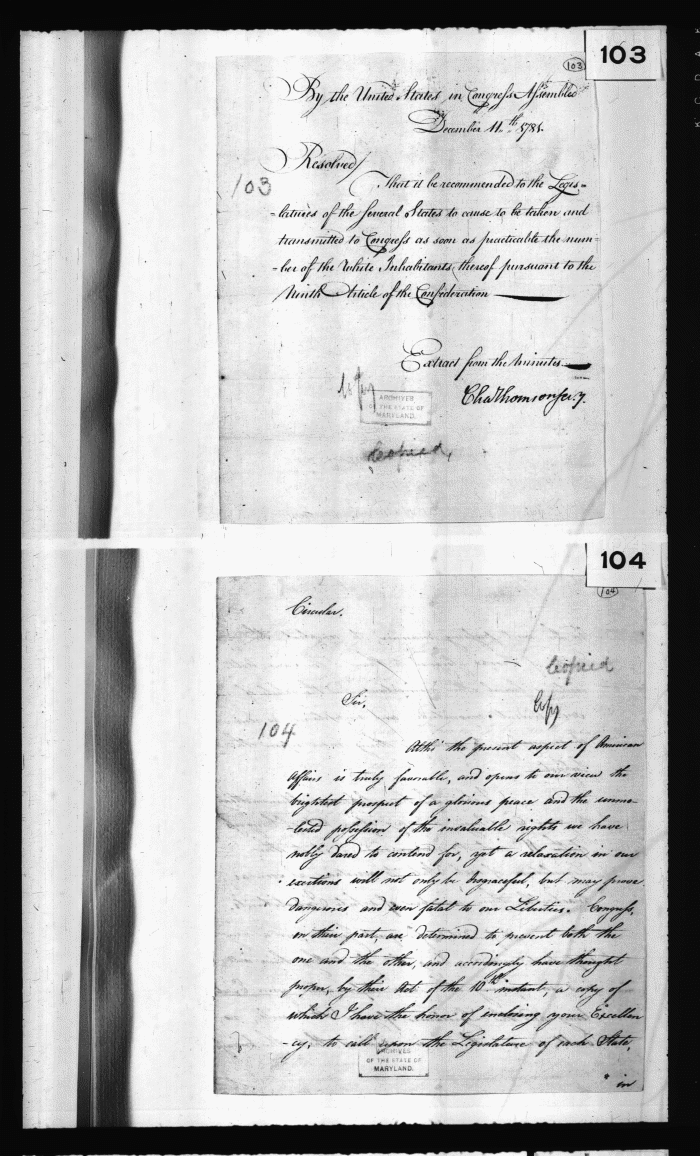 103
103
By the United States in Congress Assembled
December 11th 1781.
Resolved
103
That it be recommended to the Legis=
=latures of the several States to cause to be taken and
transmitted to Congress as soon as practicable the num=
=ber of the White Inhabitants thereof pursuant to the
Ninth Article of the Confederation
Extract from the minutes
Cha Thomson secy.
Copy
ARCHIVES
OF THE STATE OF
MARYLAND.
Copied,
104
104
Circular.
Copied
Copy
Sir,
104
Altho' the present aspect of American
Affairs is truly favorable, and opens to our view the
brightest prospect of a glorious peace and the unmo-
-lested possession of the invaluable rights we have
nobly dared to contend for, yet a relaxation in our
exertions will not only be disgraceful, but may prove
dangerous and even fatal to our Liberties. Congress,
on their part, are determined to prevent both the
one and the other, and accordingly have thought
proper, by their Act of the 10th instant, a copy of
which I have the honor of enclosing your Excellen
-cy, to call upon the Legislature of each State,
ARCHIVES
OF THE STATE OF
MARYLAND.
in